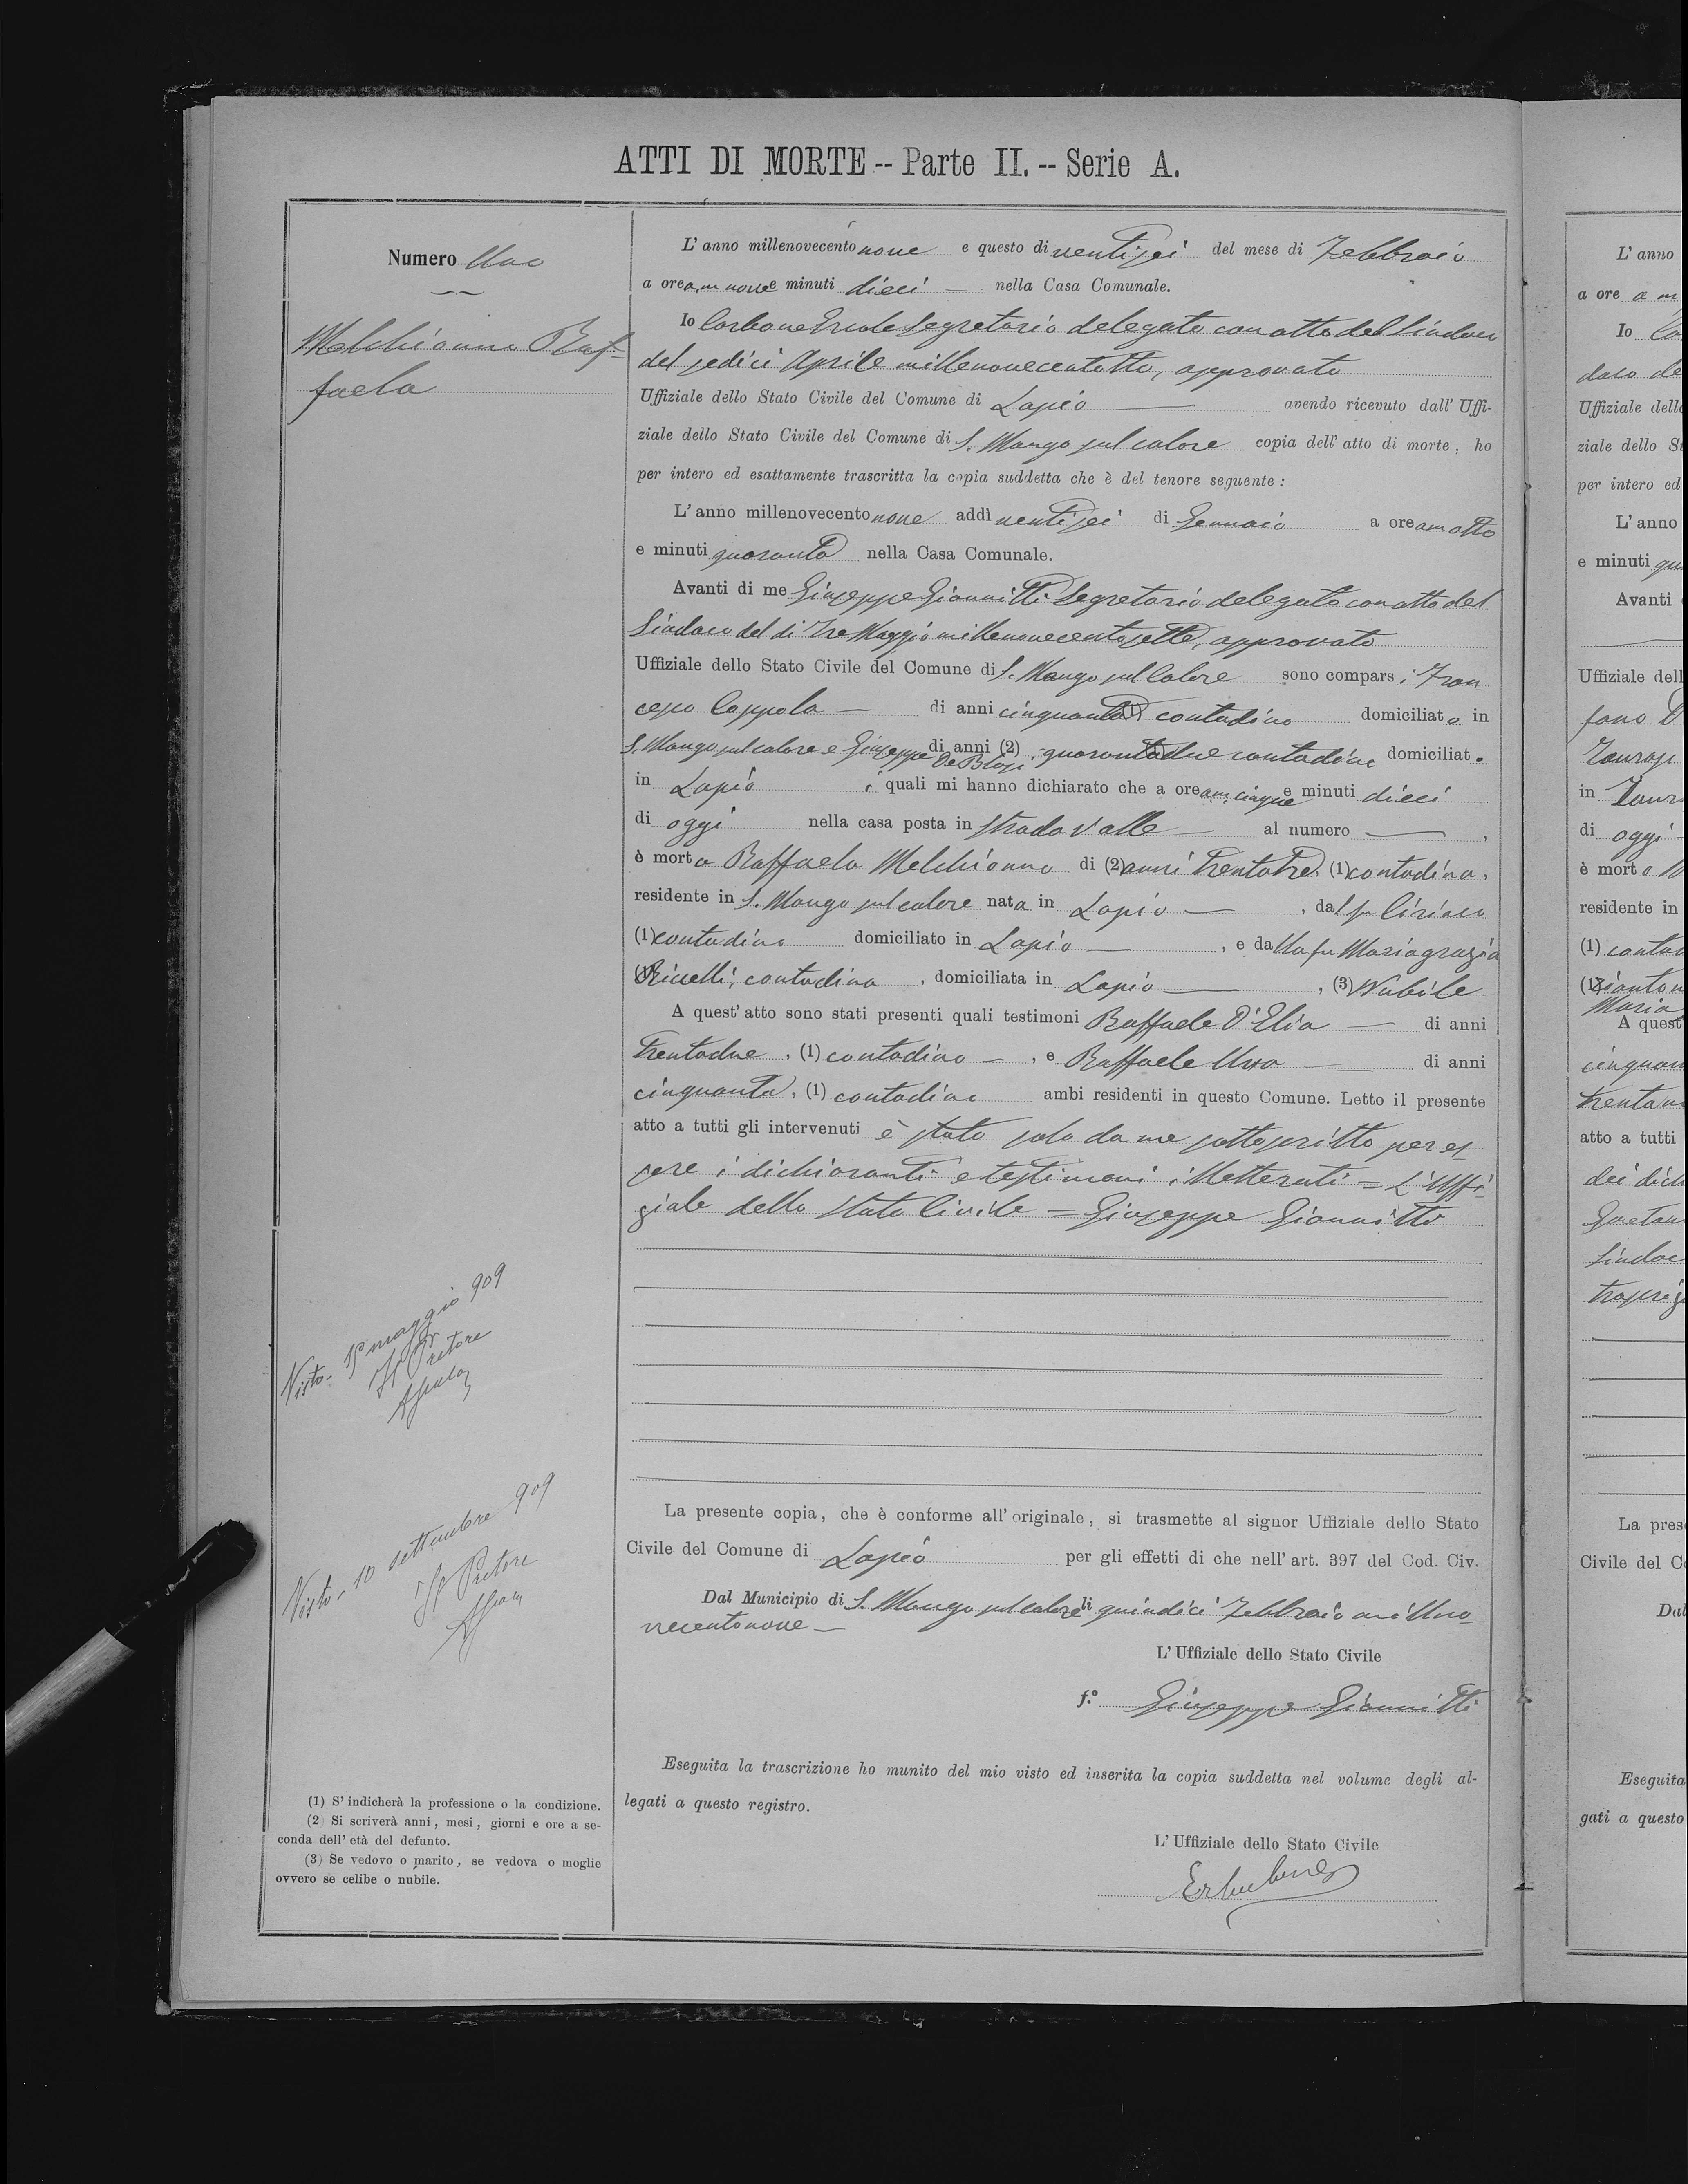 ATTI DI MORTE -- Parte II. -- Serie A.
Numero Uno
Melchionna Raf-
faela
L' anno millenovecento nove e questo dì ventisei del mese di Febbraio
a ore a.m nove e minuti dieci — nella Casa Comunale.
Io Carbone Ercole Segretario delegato con atto del Sindaco
del sedici Aprile millenovecentotto, approvato
Uffiziale dello Stato Civile del Comune di Lapio — avendo ricevuto dall' Uffi-
ziale dello Stato Civile del Comune di S. Mango sul calore copia dell' atto di morte, ho
per intero ed esattamente trascritta la copia suddetta che è del tenore seguente:
L' anno millenovecento nove addì ventisei di Gennaio a ore am otto
e minuti quaranta nella Casa Comunale.
Avanti di me Giuseppe Giannitti Segretario delegato con atto del
Sindaco del dì tre Maggio millenovecentosette, approvato
Uffiziale dello Stato Civile del Comune di S. Mango sul Calore sono compars i Fran
cesco Coppola — di anni cinquanta (1) contadino domiciliato in
S. Mango sul calore e Giuseppe De Blasi di anni (2) quarantadue contadino domiciliat o
in Lapio i quali mi hanno dichiarato che a ore am. cinque e minuti dieci
di oggi nella casa posta in strada Valle — al numero — ,
è morta Raffaela Melchionna di (2) anni trentatre, (1) contadina,
residente in S. Mango sul calore nata in Lapio — , dal fu Ciriaco
(1) contadino domiciliato in Lapio — , e dalla fu Mariagrazia
(1) contadina , domiciliata in Lapio — , (3) Nubile
A quest' atto sono stati presenti quali testimoni Raffaele D'Elia — di anni
trentadue , (1) contadino — , e Raffaele Uva — di anni
cinquanta, (1) contadino ambi residenti in questo Comune. Letto il presente
atto a tutti gli intervenuti è stato solo da me sottoscritto per es
sere i dichiaranti e testimoni illetterati = L'Uffi
ziale dello Stato Civile = Giuseppe Giannitti
Visto- 15 maggio 909
Il Pretore
Visto, 10 settembre 909
Il Pretore
La presente copia, che è conforme all' originale, si trasmette al signor Uffiziale dello Stato
Civile del Comune di Lapio per gli effetti di che nell' art. 397 del Cod. Civ.
Dal Municipio di S. Mango sul calore li quindici Febbraio milleno
vecentonove —
L' Uffiziale dello Stato Civile
f.° Giuseppe Giannitti
Eseguita la trascrizione ho munito del mio visto ed inserita la copia suddetta nel volume degli al-
legati a questo registro.
L' Uffiziale dello Stato Civile
(1) S' indicherà la professione o la condizione.
(2) Si scriverà anni, mesi, giorni e ore a se-
conda dell' età del defunto.
(3) Se vedovo o marito, se vedova o moglie
ovvero se celibe o nubile.
L' anno
a ore a m
Io
Uffiziale dello
ziale dello St
per intero ed
L' anno
e minuti
Avanti
Uffiziale dell
in
di oggi
è mort o
residente in
(1)
(1)
Maria
A quest
atto a tutti
La pres
Civile del C
Dal
Eseguita
gati a questo